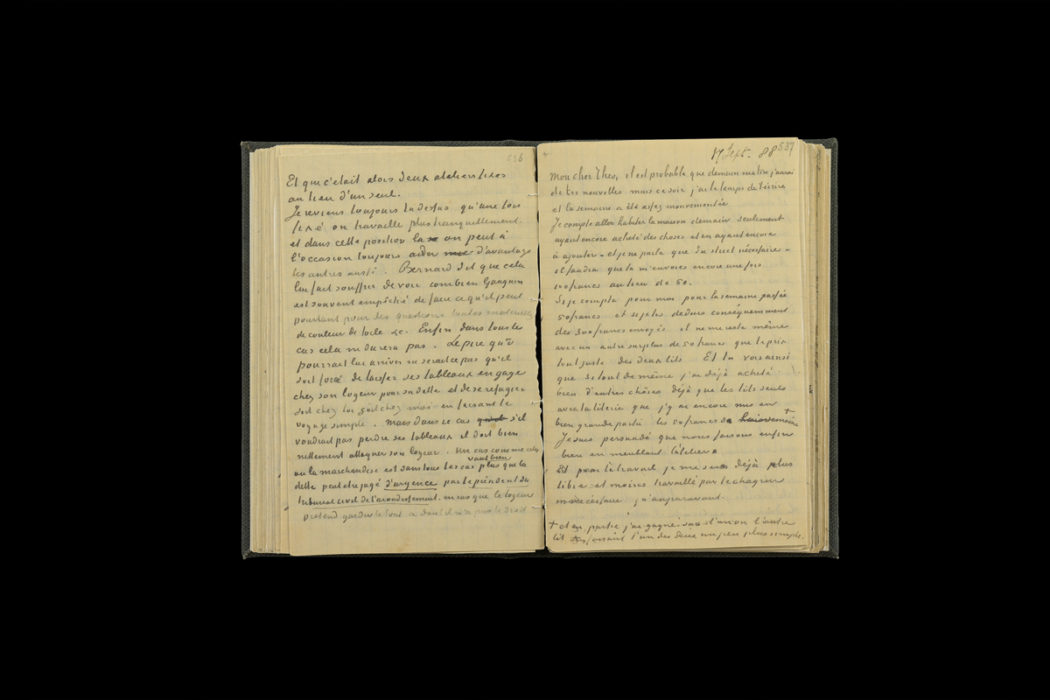 536
Et que c'était alors deux ateliers fixes
au lieu d'un seul.
Je reviens toujours là dessus qu'une fois
fixé on travaille plus tranquillement.
et dans cette position on peut à
l'occasion toujours aider d'avantage
les autres aussi. Bernard dit que cela
lui fait souffrir de voir combien Gauguin
est souvent empêché de faire ce qu'il peut
pourtant pour des questions toutes matérielles
de couleur de toile &c. Enfin dans tous les
cas cela ne durera pas. Le pire qu'il
pourrait lui arriver ce serait ce pas qu'il
soit forcé de laisser ses tableaux en gage
chez son logeur pour sa dette et de se refugier
soit chez toi soit chez moi en faisant le
voyage simple. mais dans ce cas s'il
voudrait pas perdre ses tableaux il doit bien
nettement attaquer son logeur. Un cas comme cela
vaut bien
ou la marchandise est dans tous les cas plus que la
dette peut être jugé d'urgence par le président du
tribunal civil de l'arrondissement. en cas que le logeur
prétend garder le tout à dont il n'a pas le droit
17 Sept. 88 537
Mon cher Theo, il est probable que demain matin j'aurai
de tes nouvelles mais ce soir j'ai le temps de t'écrire
et la semaine a été assez mouvementée
Je compte aller habiter la maison demain seulement
ayant encore acheté des choses et en ayant encore
à ajouter – et je ne parle que du strict nécessaire –
il faudra que tu m'envoies encore une fois
100 francs au lieu de 50.
Si je compte pour moi pour la semaine passée
50 francs et si je les deduis conséquemment
des 300 francs envoyés il ne me reste même
avec un autre surplus de 50 francs que le prix
tout juste des deux lits Et tu vois ainsi
que si tout de même j'ai déjà acheté
bien d'autres choses déjà que les lits seuls
avec la literie que j'y ai encore mis en
bien grande partie les 50 francs de la semaine +
Je suis persuadé que nous faisons enfin
bien en meublant l'atelier.
Et pour le travail je me sens déjà plus
libre et moins travaillé par le chagrin
nécessaire qu'auparavant.
+ et en partie j'ai gagné sur l'un ou l'autre
lit en faisant l'un des deux un peu plus simple.